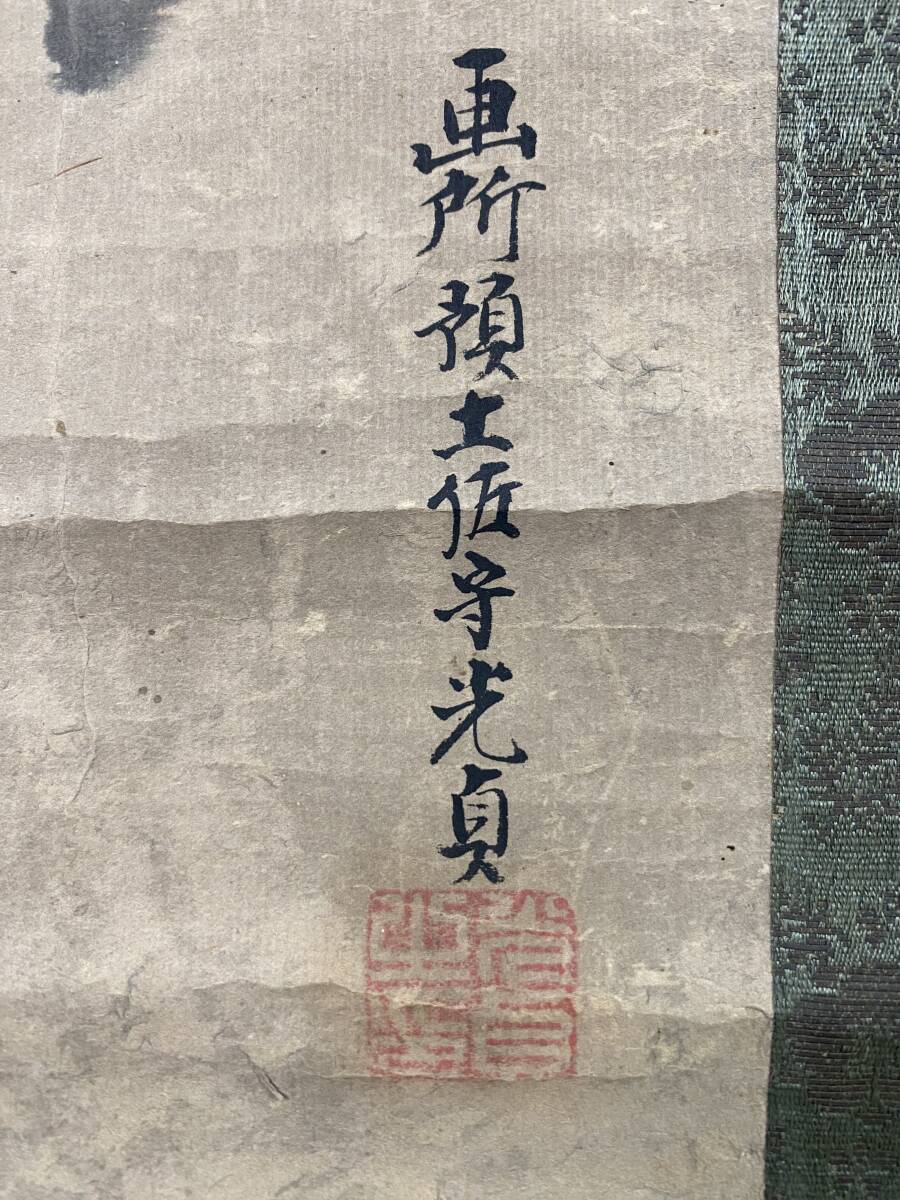 画所預土佐守光貞